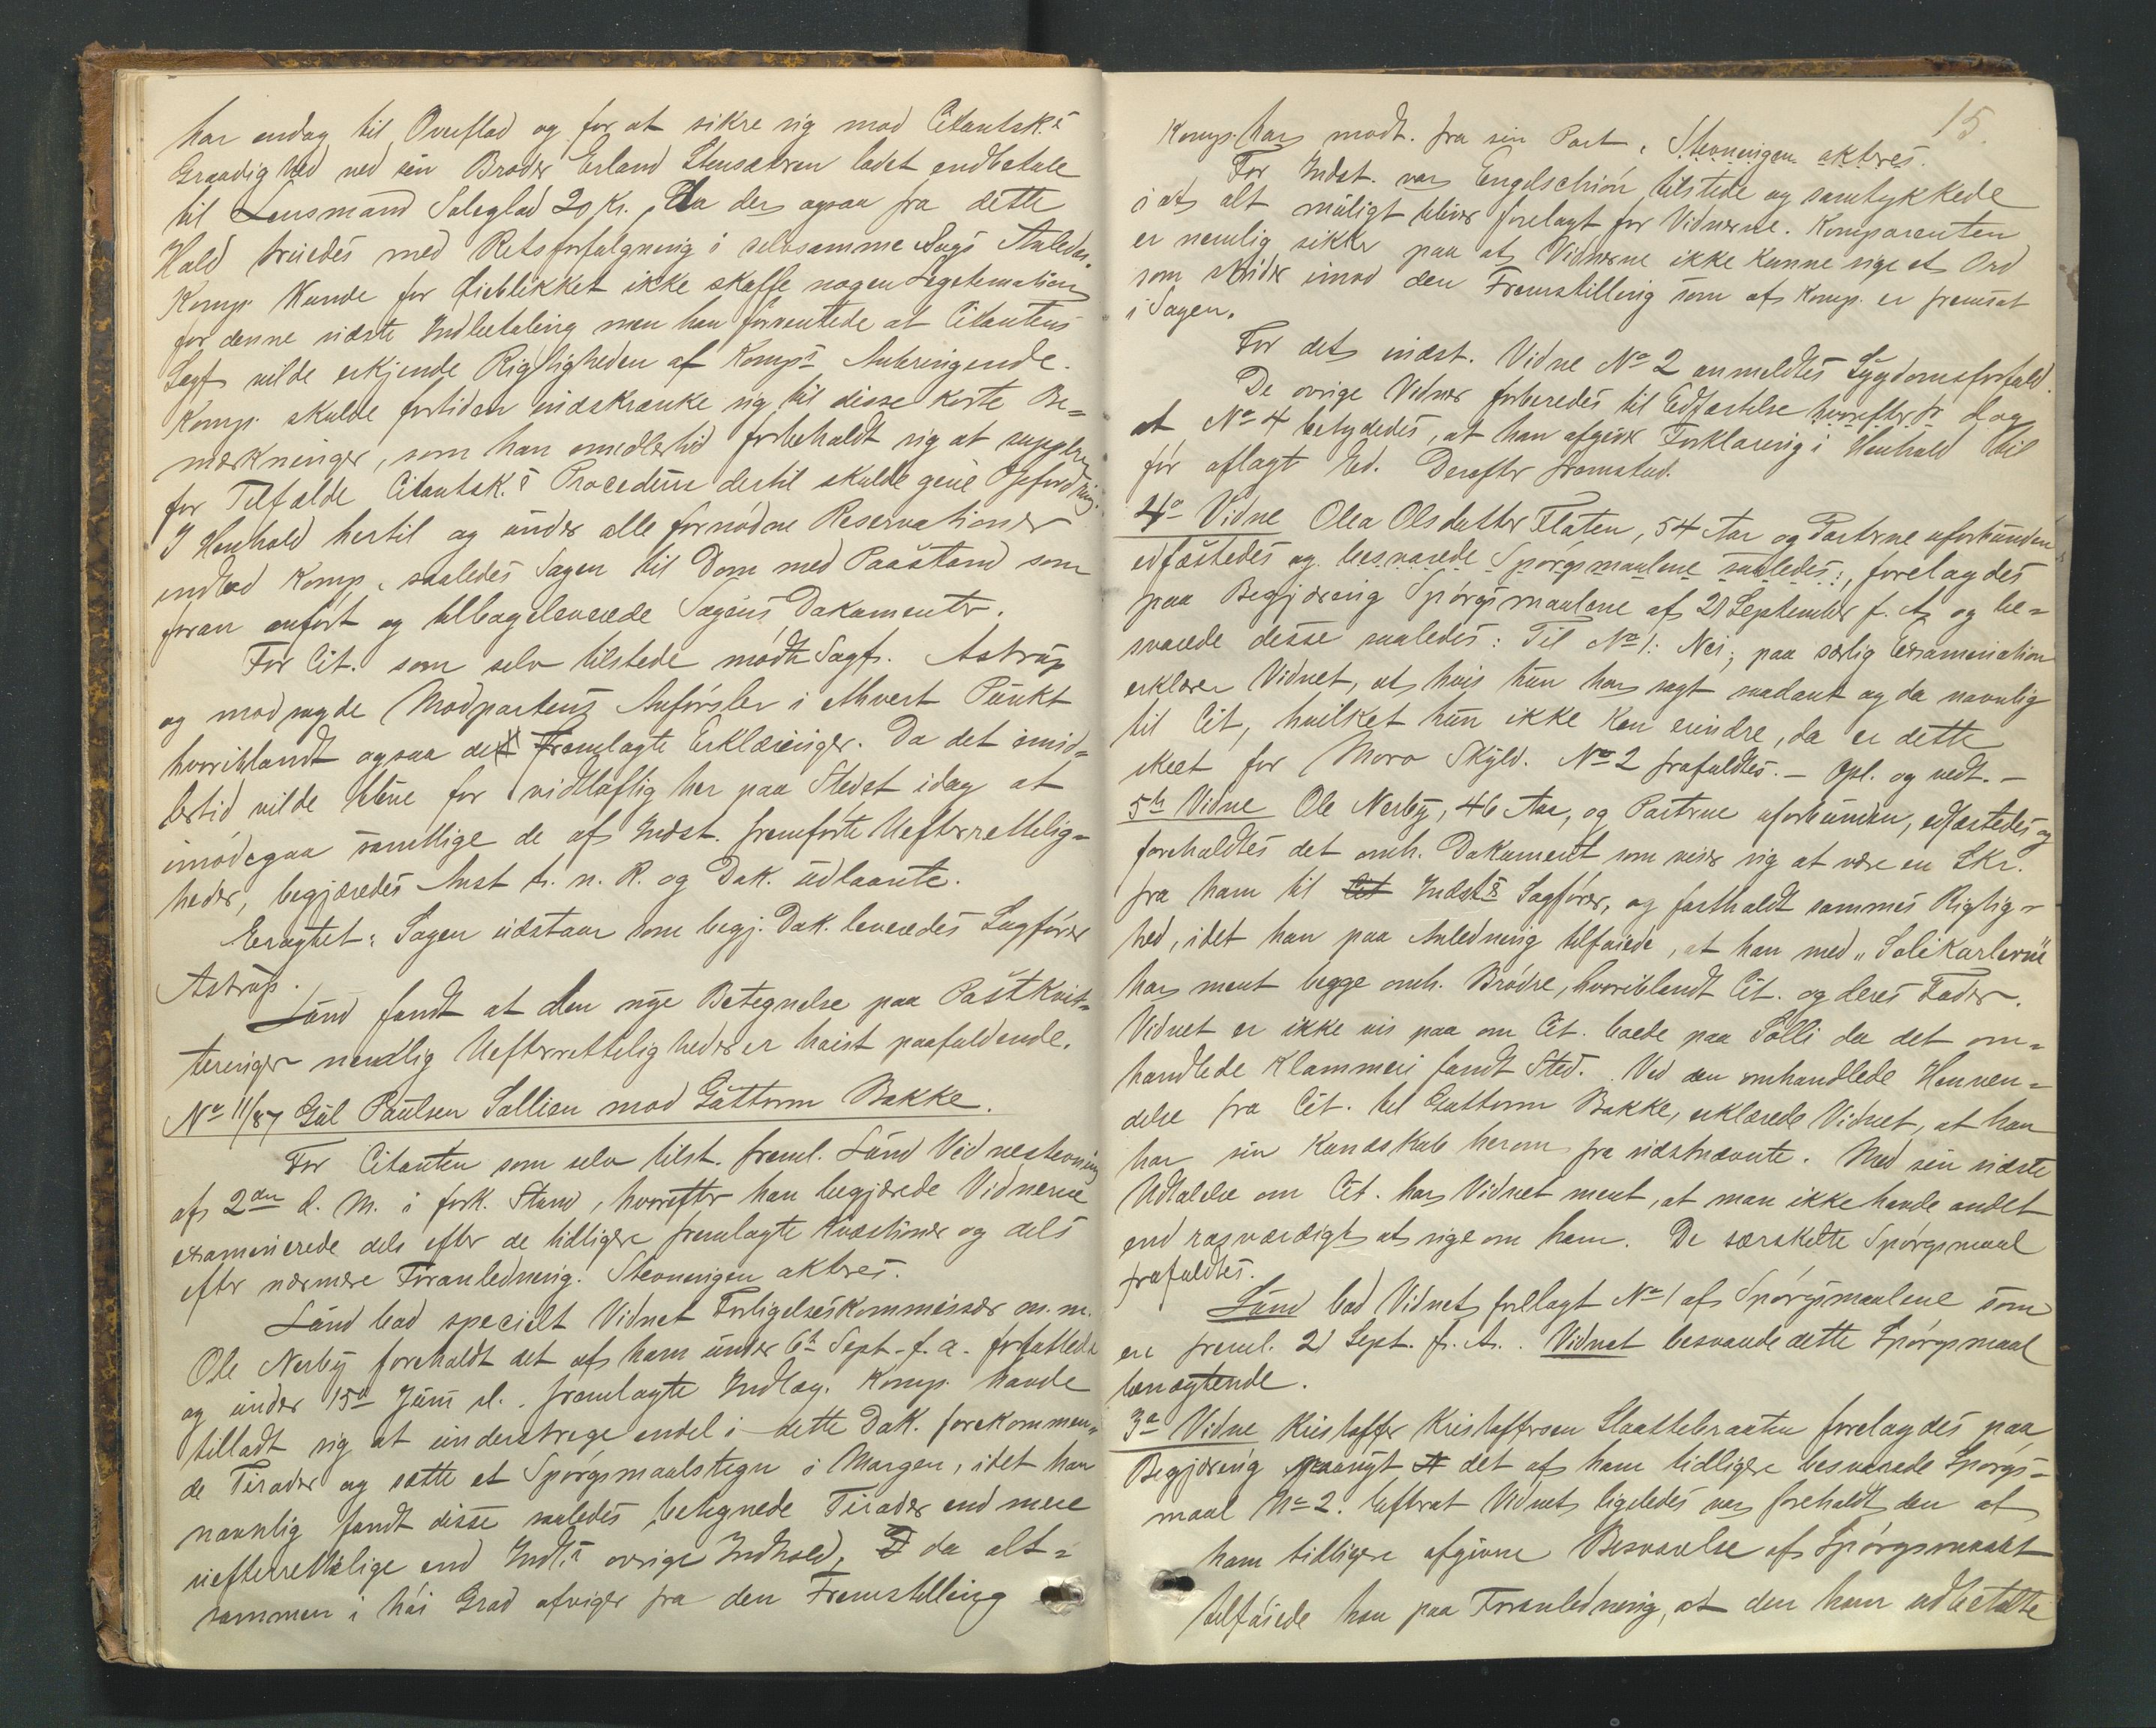 har endog til Overflod og for at sikre sig mod Citantsk.s
Graadighed ved sin Broder Erland Stensætren ladet indbetale
til Lensmand Soleglad 20 Kr., da der ogsaa fra dette
Hold truedes med Retsforfølgning i selvsamme Sags Anledn.
Komp. kunde for Øieblikket ikke skaffe nogen Legitimation
for denne sidste Indbetaling men han forventede at Citantens
Sagf. vilde erkjende Rigtigheden af Komp.s Anbringende.
Komp. skulde fortiden indskrænke sig til disse korte Be=
mærkninger, som han imidlertid forbeholdt sig at supplere
for Tilfælde Citantsk.s Procedure dertil skulde give Opfordring.
I Henhold hertil og under alle fornødne Reservationer
indlod Komp. saaledes Sagen til Dom med Paastand som
foran anført og tilbageleverede Sagens Dokumenter.
For Cit. som selv tilstede mødte Sagf. Astrup
og modsagde Modpartens Anførsler i ethvert Punkt
hvoriblandt ogsaa de fremlagte Erklæringer. Da det imid=
lertid vilde blive for vidtløftig her paa Stedet idag at
imødegaa samtlige de af Indst. fremførte Uefterrettelig=
heder, begjæredes Anst. t. n. R. og Dok. udlaante.
Eragtet: Sagen udstaar som begj. Dok. leveredes Sagfører
Astrup.
Lund fandt at den nye Betegnelse paa Postkvit=
teringer nemlig Uefterretteligheder er høist paafaldende.
No 11/87 Gul Paulsen Sollien mod Guttorm Bakke.
For Citanten som selv tilst. freml. Lund Vidnestevning
af 2den d. M. i fork. Stand, hvorefter han begjærede Vidnerne
examinerede dels efter de tidligere fremlagte Kvæstioner og dels
efter nærmere Foranledning. Stevningen akteres.
Lund bad specielt Vidnet Forligelseskommissær m. m.
Ole Nerby foreholdt det af ham under 6te Sept. f. a. forfattede
og under 15de Juni d. fremlagte Indlæg. Komp. havde
tilladt sig at understrege endel i dette Dok. forekommen=
de Tirader og sætte et Spørgsmaalstegn i Margen, idet han
navnlig fandt disse saaledes betegnede Tirader end mere
uefterrettelige end Indl.s øvrige Indhold, da alt=
sammen i høi Grad afviger fra den Fremstilling
15.
Komp. har modt. fra sin Part. Stevningen akteres.
For Indst. var Engelschiøn tilstede og samtykkede
i at alt muligt bliver forelagt for Vidnerne. Komparenten
er nemlig sikker paa at Vidnerne ikke kunne sige et Ord
som strider imod den Fremstilling som af Komp. er fremsat
i Sagen.
For det indst. Vidne No 2 anmeldtes Sygdomsforfald.
De øvrige Vidner forberedes til Edfæstelse hvorefter
at No 4 betydedes, at han afgiver Forklaring i Henhold til
før aflagt Ed. Derefter fremstod.
4de Vidne Olea Olsdatter Flaten, 54 Aar og Parterne uforbunden
edfæstedes og besvarede Spørgsmaalene saaledes:, forelagdes
paa Begjæring Spørgsmaalene af 21 September f. A. og be=
svarede disse saaledes: Til No 1: Nei; paa særlig Examination
erklærer Vidnet, at hvis hun har sagt saadant og da navnlig
til Cit, hvilket hun ikke kan erindre, da er dette
skeet for Moro Skyld. No 2 frafaldtes. – Opl. og vedt. –
5te Vidne Ole Nerby, 46 Aar, og Parterne uforbunden, edfæstedes og
foreholdtes det omh. Dokument som viser sig at være en Skr.
fra ham til Cit Indst.s Sagfører, og fastholdt sammes Rigtig=
hed, idet han paa Anledning tilføiede, at han med „Solikarlerne"
har ment begge omh. Brødre, hvoriblandt Cit. og deres Fader.
Vidnet er ikke vis paa om Cit. boede paa Solli da det om=
handlede Klammeri fandt Sted. Ved den omhandlede Henven=
delse fra Cit. til Guttorm Bakke, erklærede Vidnet, at han
har sin Kundskab herom fra sidstnævnte. Med sin sidste
Udtalelse om Cit. har Vidnet ment, at man ikke havde andet
end rosværdigt at sige om ham. De særskilte Spørgsmaal
frafaldtes.
Lund bad Vidnet forelagt No 1 af Spørgsmaalene som
er freml. 21 Sept. f. A. Vidnet besvarede dette Spørgsmaal
benægtende.
3de Vidne Kristoffer Kristoffersen Slaattebraaten forelagdes paa
Begjæring paanyt det af ham tidligere besvarede Spørgs=
maal No 2. Efterat Vidnet ligeledes var foreholdt den af
ham tidligere afgivne Besvarelse af Spørgsmaalet
tilføiede han paa Foranledning, at den ham udbetalte